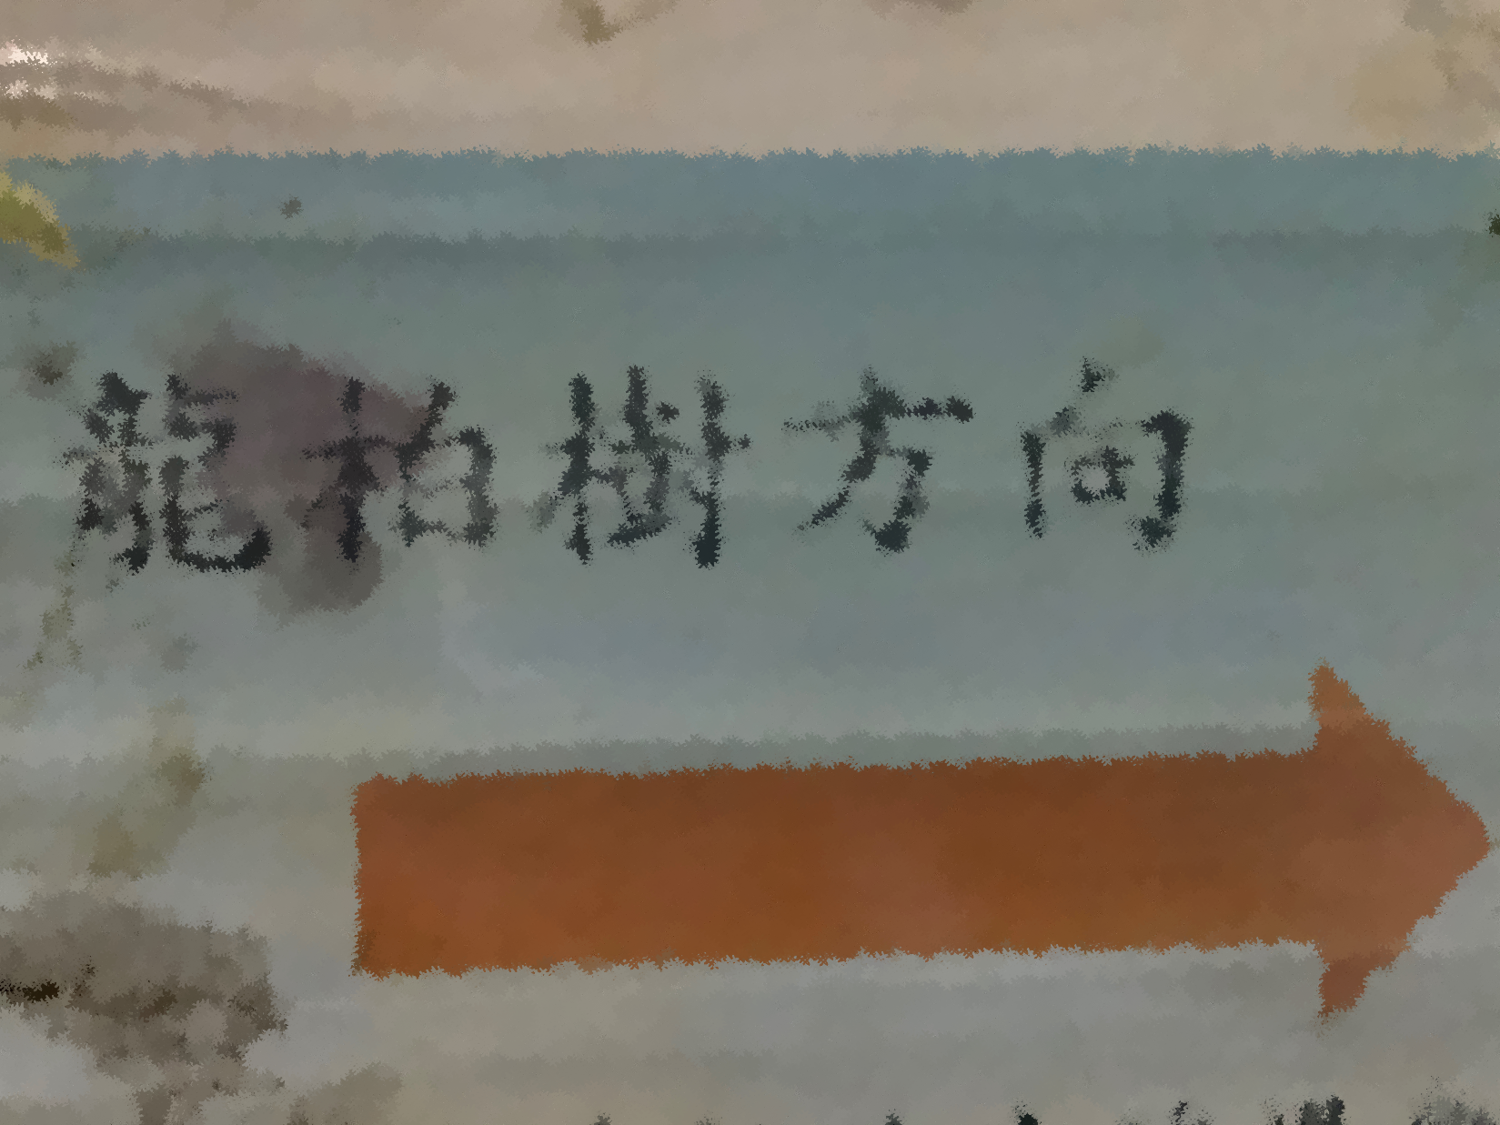 龍柏樹方向